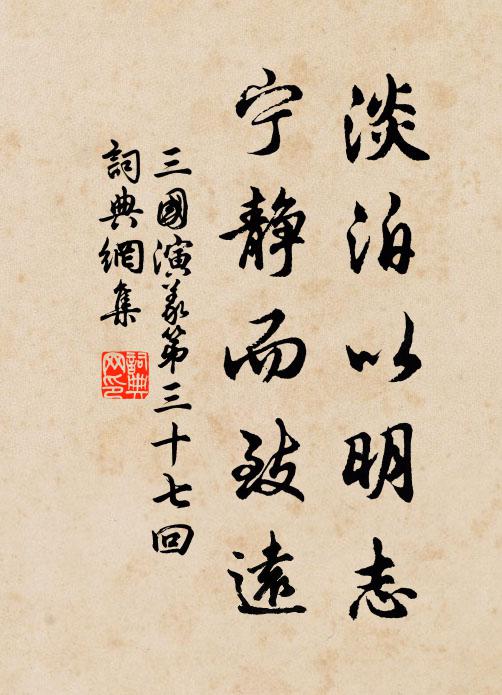 淡泊以明志
宁静而致遠
三國演義第三十七回
詞典網集
詞典
网印